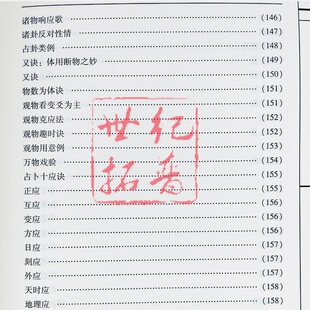 诸物响应歌 (146)
诸卦反对性情 (147)
占卦类例 (148)
又诀：体用断物之妙 (149)
又诀 (150)
物数为体诀 (151)
观物看变爻为主 (151)
观物克应法 (152)
观物趣时诀 (152)
观物用意例 (153)
万物戏验 (154)
占卜十应诀 (155)
正应 (155)
互应 (156)
变应 (156)
方应 (156)
日应 (157)
刻应 (157)
外应 (157)
天时应 (158)
地理应 (158)
世纪
拓普